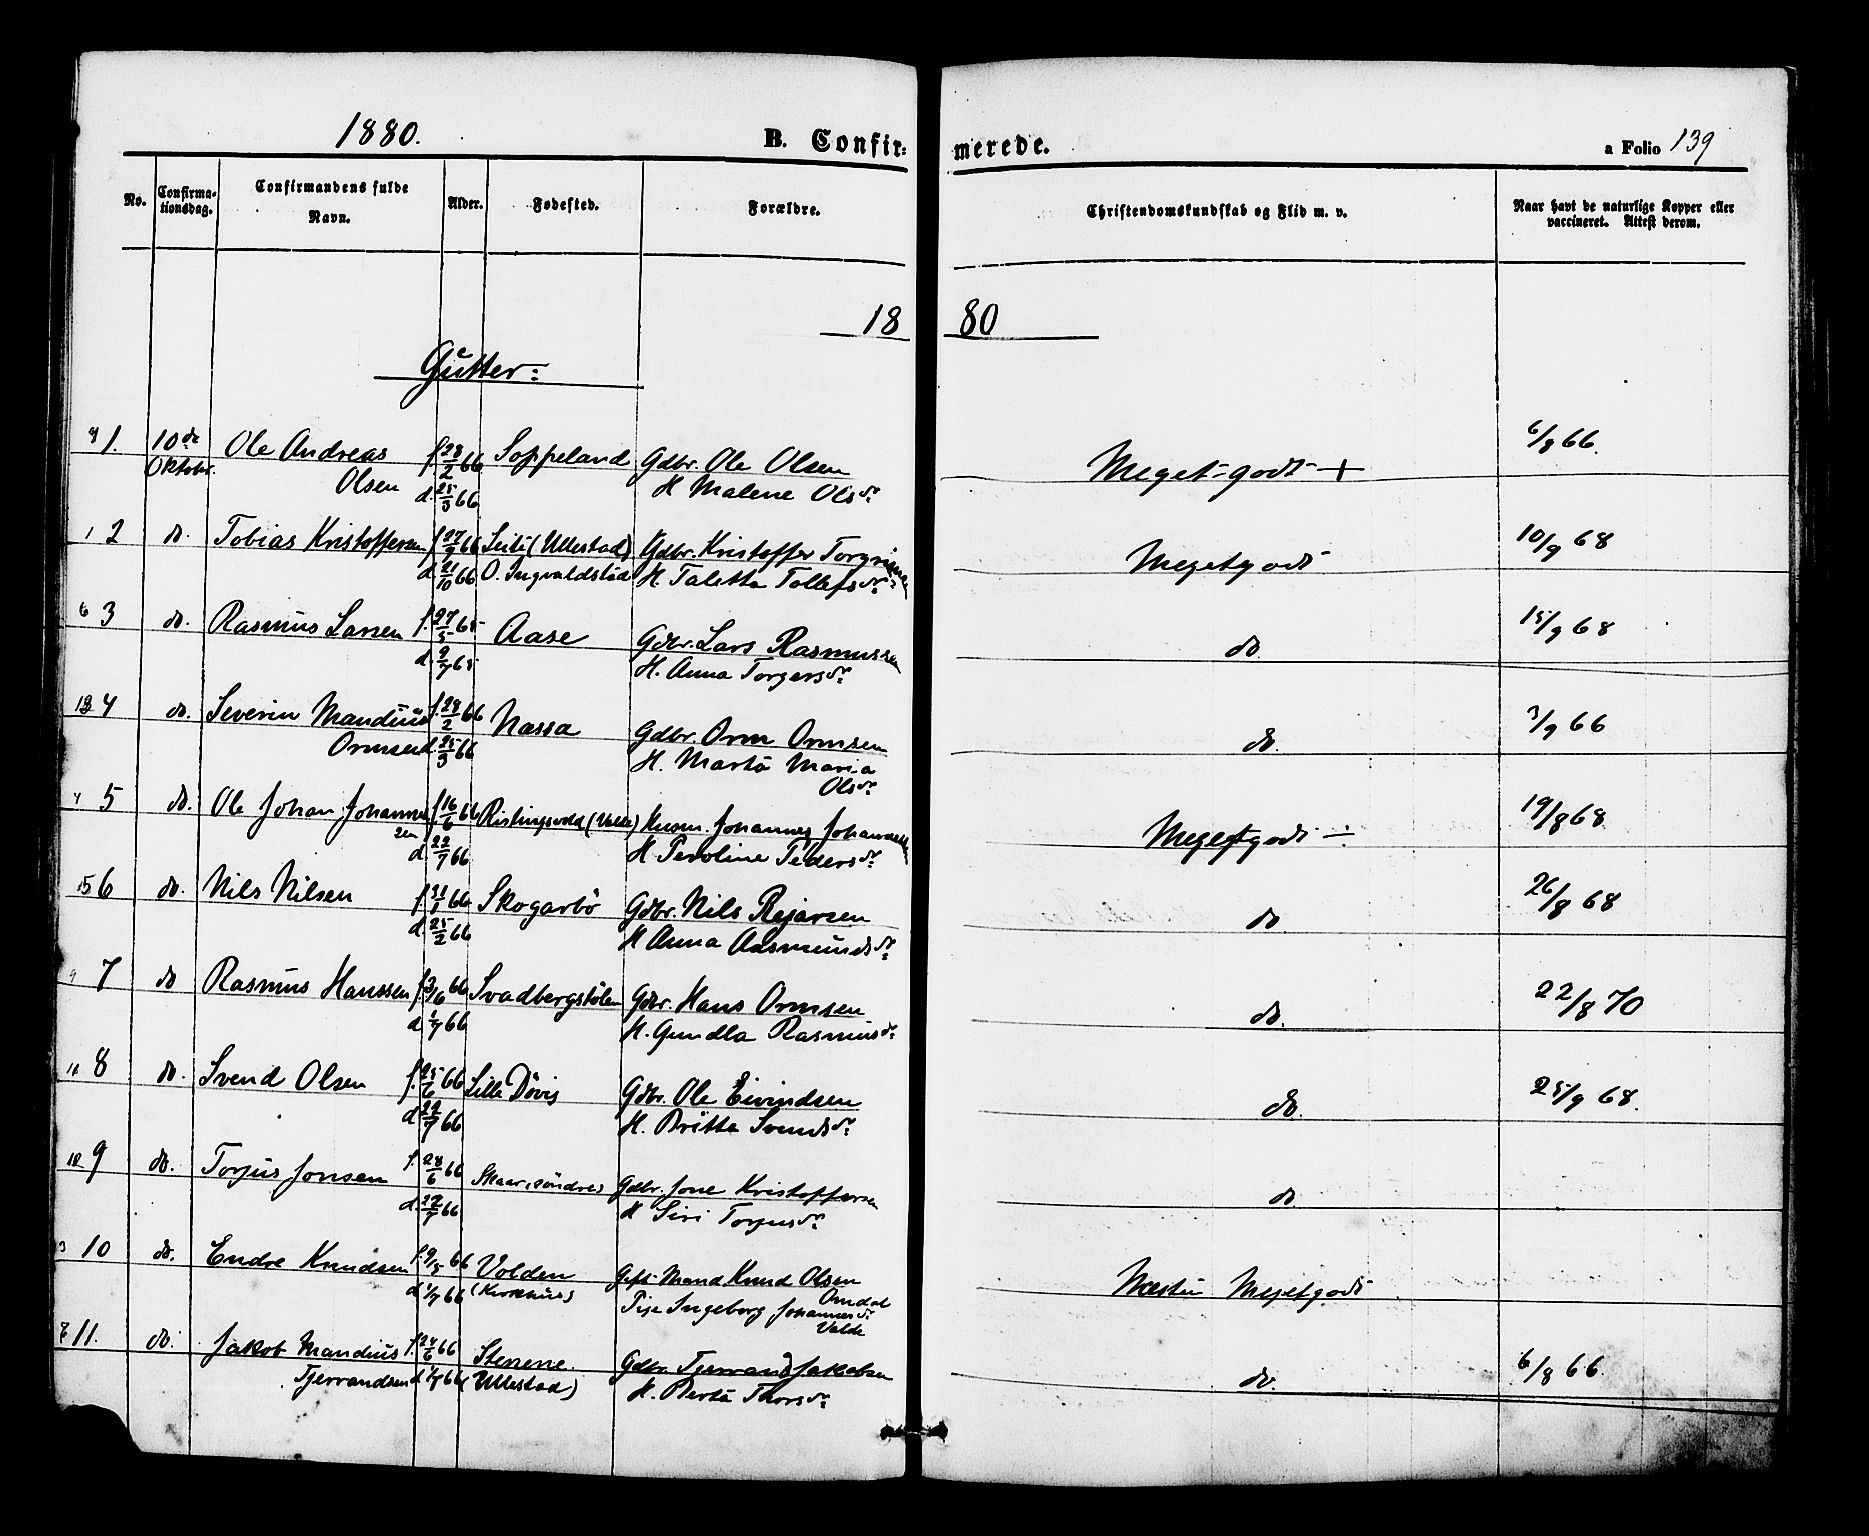 1880.
B. Confir-
merede.
a Folio 139
No.
Confirma-
tionsdag.
Confirmandens fulde
Navn.
Alder.
Fødested.
Forældre.
Christendomskundskab og Flid m. v.
Naar havt de naturlige Kopper eller
vaccineret. Attest derom.
18 80
Gutter:
1. 10de Ole Andreas f. 28/2 66 Soppeland Gdbr. Ole Olsen Meget godt + 6/9 66.
Oktober. Olsen d. 25/3 66 H Malene Olsdr.
1 2 do. Tobias Kristoffersen f. 27/9 66 (Ullestad) Gdbr. Kristoffer Meget godt 10/9 68
d. 21/10 66 O. Ingvaldstad H. Taletta Tollefsdr.
6 3 do. Rasmus Larsen f. 27/5 65 Aase Gdbr. Lars Rasmussen do. 15/9 68
d. 9/7 65 H. Anna Torgersdr.
4 do. Severin Mandius f. 28/2 66 Nassa Gdbr. Orm Ormsen do. 3/9 66
Ormsen d. 25/3 66 H. Marta Maria
Olsdr.
4 5 do. Ole Johan Johannes f. 16/6 66 Gdbr. Johannes Meget godt ÷ 19/8 68
sen d. 22/7 66 H. Peroline Pedersdr.
15 6 do. Nils Nilsen f. 31/1 66 Skogarbö Gdbr. Nils Rejarsen do 26/8 68
d. 25/2 66 H Anna Aasmundsdr.
9 7 do Rasmus Hanssen f. 3/6 66 Svadbergstölen Gdbr. Hans Ormsen do. 22/8 70
d. 1/7 66 H. Gundla Rasmusdr.
11 8 do. Svend Olsen f. 25/6 66 Lille Dövig Gdbr. Ole Eivindsen do. 25/9 68.
d. 22/7 66 H. Britta Svendsdr.
9 do. Torjus Jonsen f. 28/6 66 Skaar, söndre Gdbr. Jone Kristoffersen do.
d. 22/7 66 H Siri Torjusdr.
3 10 do. Endre Knudsen f. 9/5 66 Volden Gift Mand Knud Olsen Næsten Meget godt
d. 1/7 66 (Kirkhus) Omdal
Pige Ingeborg Johannesdr.
Valde
11. do. Jakob Mandius f. 24/6 66 Stenene. Gdbr. Tjerrand Jakobsen do. 6/8 66.
Tjerrandsen d. 66 (Ullestad) H. Berta Thorsdr.